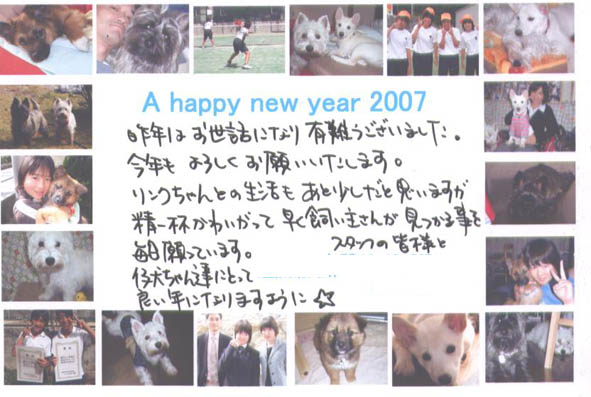 A happy new year 2007
昨年はお世話になり有難うございました。
今年もよろしくお願いいたします。
リンクちゃんとの生活もあと少しだと思いますが
精一杯かわいがって早く飼い主さんが見つかる事を
毎日願っています。
スタッフの皆様と
仔犬ちゃん達にとって
良い年になりますように☆